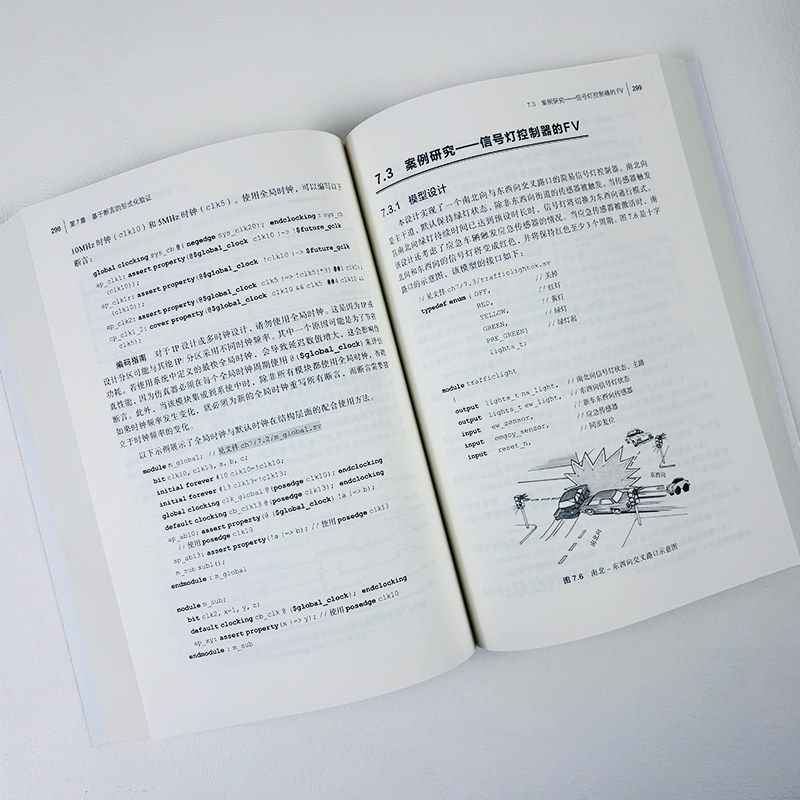 298 第7章 基于断言的形式化验证
10MHz 时钟（clk10）和 5MHz 时钟（clk5）。使用全局时钟，可以编写以下
断言：
global clocking sys_cb @(negedge sys_clk20); endclocking : sys_cb
ap_clk1: assert property(@$global_clock clk10 |-> $future_gclk
(clk10));
ap_clk1r: assert property(@$global_clock !clk10 |-> $future_gclk
(!clk10));
ap_clk2: assert property(@$global_clock clk5 |-> !clk5[*3] ##1 clk5);
cp_clk1_2: cover property(@$global_clock clk10 && clk5 ##4 clk10 &&
clk5);
编码指南 对于 IP 设计或多时钟设计，请勿使用全局时钟。这是因为 IP 或
设计分区可能与其他 IP/ 分区采用不同时钟频率。其中一个原因可能是为了节省
功耗。若使用系统中定义的最快全局时钟，会导致延迟数值增大，这会影响仿
真性能，因为仿真器必须在每个全局时钟周期使用 @($global_clock) 来评估
断言。此外，当该模块集成到系统中时，除非所有模块都使用全局时钟，否则
如果时钟频率发生变化，就必须为新的全局时钟重写所有断言，而断言需要独
立于时钟频率的变化。
以下示例展示了全局时钟与默认时钟在结构层面的配合使用方法。
module m_global; // 见文件 ch7/7.2/m_global.sv
bit clk10, clk13, a, b, c;
initial forever #10 clk10=!clk10;
initial forever #13 clk13=!clk13;
global clocking clk_global @(posedge clk10); endclocking
default clocking cb_clk13 @(posedge clk13); endclocking
ap_ab10: assert property(@ ($global_clock) !a |-> b);
// 使用 posedge clk10
ap_ab13: assert property(!a |-> b); // 使用 posedge clk13
m_sub sub1();
endmodule : m_global
module m_sub;
bit clk2, x=1, y, z;
default clocking cb_clk @ ($global_clock); endclocking
ap_xy: assert property(x |-> y); // 使用 posedge clk10
endmodule : m_sub
7.3 案例研究——信号灯控制器的 FV 299
7.3 案例研究——信号灯控制器的FV
7.3.1 模型设计
本设计实现了一个南北向与东西向交叉路口的简易信号灯控制器。南北向
是主干道，默认保持绿灯状态，除非东西向街道的传感器被触发。当传感器触发
且南北向绿灯持续时间已达到预设时长时，信号灯将切换为东西向通行模式。
该设计还考虑了应急车辆触发应急传感器的情况。当应急传感器被激活时，南
北向和东西向的信号灯将变成红灯，并将保持红色至少 3 个周期。图 7.6 是十字
路口的示意图。该模型的接口如下：
// 见文件 ch7/7.3/trafficlightok.sv
typedef enum { OFF, // 关掉
RED, // 红灯
YELLOW, // 黄灯
GREEN, // 绿灯
PRE_GREEN} // 绿灯前
lights_t;
module trafficlight
(
output lights_t ns_light, // 南北向信号灯状态，主路
output lights_t ew_light, // 东西向信号灯状态
input ew_sensor, // 新车东西向传感器
input emgcy_sensor, // 应急传感器
input reset_n, // 同步复位
东西向
南北向
图 7.6 南北 - 东西向交叉路口示意图